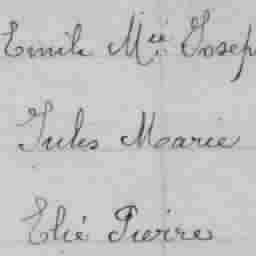 Emile Mie Joseph
Jules Marie
Elie Pierre